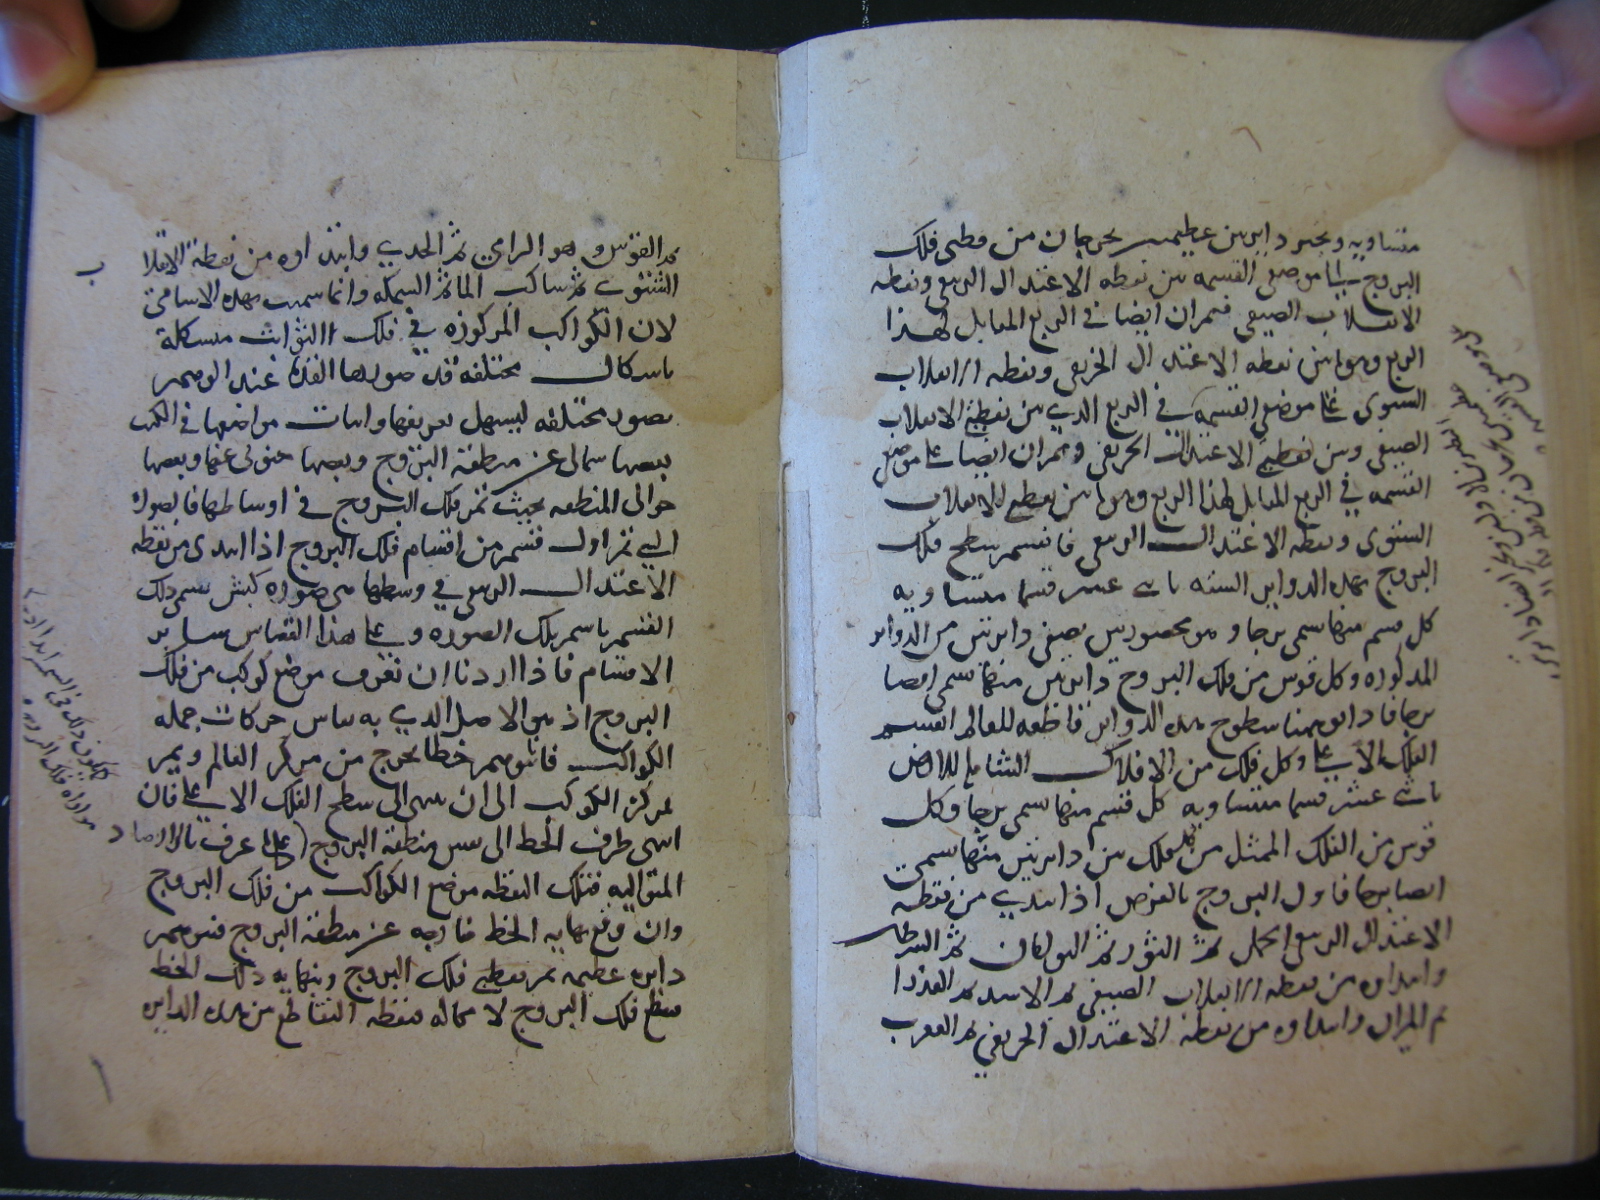 متساويه ونجيز دايرتين عظيمتين يخرجان من قطبى فلك
البروج على موضعى القسمه بين نقطه الاعتدال الربيعى ونقطه
الانقلاب الصيفى فتمران ايضا فى الربع المقابل لهذا
الربع وهو ما بين نقطه الاعتدال الخريفى ونقطه الانقلاب
الشتوى على موضعى القسمه فى الربع الذى بين نقطتى الانقلاب
الصيفى وبين نقطتى الاعتدال الخريفى وتمران ايضا على موضعى
القسمه فى الربع المقابل لهذا الربع وهو ما بين نقطتى الانقلاب
الشتوى ونقطه الاعتدال الربيعى فانقسم سطح فلك
البروج بهذه الدواير السته باثنى عشر قسما متساويه
كل قسم منها سمى برجا وهو محصور بين نصفى دايرتين من الدواير
المذكوره وكل قوس من فلك البروج بين دايرتين منها سمى ايضا
برجا فاذا توهمنا سطوح هذه الدواير قاطعه للعالم انقسم
الفلك الاعلى وكل فلك من الافلاك الشامله للارض
باثنى عشر قسما متساويه كل قسم منها سمى برجا وكل
قوس من الفلك الممثل من كل فلك بين دايرتين منها سميت
ايضا برجا فاول البروج بالفرض اذا ابتدى من نقطه
الاعتدال الربيعى الحمل ثم الثور ثم التوامان ثم السرطان
وابتداوه من نقطه الانقلاب الصيفى ثم الاسد ثم العذرا
ثم الميزان وابتداوه من نقطه الاعتدال الخريفى ثم العقرب
ثم القوس وهو الرامى ثم الجدى وابتداوه من نقطه الانقلاب
الشتوى ثم ساكب الما ثم السمكه وانما سميت بهذه الاسامى
لان الكواكب المركوزه فى فلك الثوابت متشكلة
باشكال مختلفه قد صورها القدما عند الوهم
بصور مختلفه ليسهل تعريفها واثبات مواضعها فى الكتب
بعضها شمالى عن منطقة البروج وبعضها جنوبى عنها وبعضها
حوالى المنطقه بحيث تمر فلك البروج فى اوساطها فالصوره
التى فى اول قسم من اقسام فلك البروج اذا ابتدى من نقطه
الاعتدال الربيعى فى وسطها هى صوره كبش سمى ذلك
القسم باسم تلك الصوره وعلى هذا القياس ساير
الاقسام فاذا اردنا ان نعرف موضع كوكب من فلك
البروج اذ هو الاصل الذى به يقاس حركات جمله
الكواكب فانتوهم خطا يخرج من مركز العالم ويمر
بمركز الكوكب الى ان ينتهى الى سطح الفلك الاعلى فان
انتهى طرف الخط الى نفس منطقة البروج على ما عرف بالارصاد
المتواليه فتلك النقطه موضع الكواكب من فلك البروج
وان وقع نهايه الخط خارجه عن منطقة البروج فنتوهم
دايره عظيمه تمر بقطبى فلك البروج وبنهايه ذلك الخط
فتقطع فلك البروج لا محاله فنقطه التقاطع من هذه الدايره